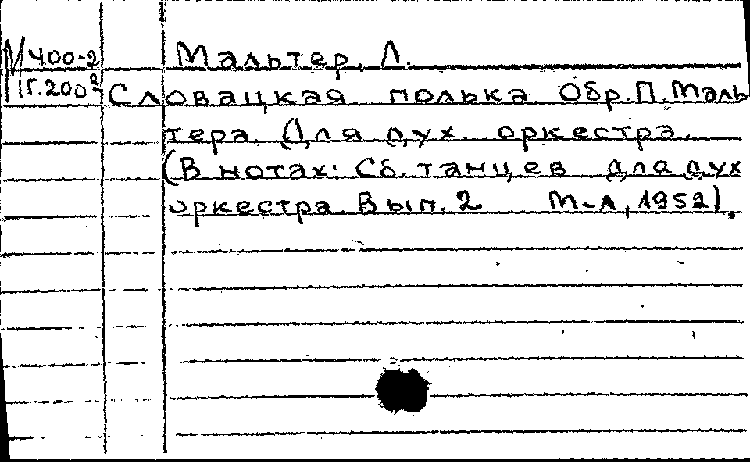 М 400-2 Мальтер, Л.
1Г.2002 Словацкая полька Обр.П.Маль
тера. Для дух. оркестра.
(В нотах: Сб. танцев для дух
оркестра. Вып. 2 М-Л, 1952).